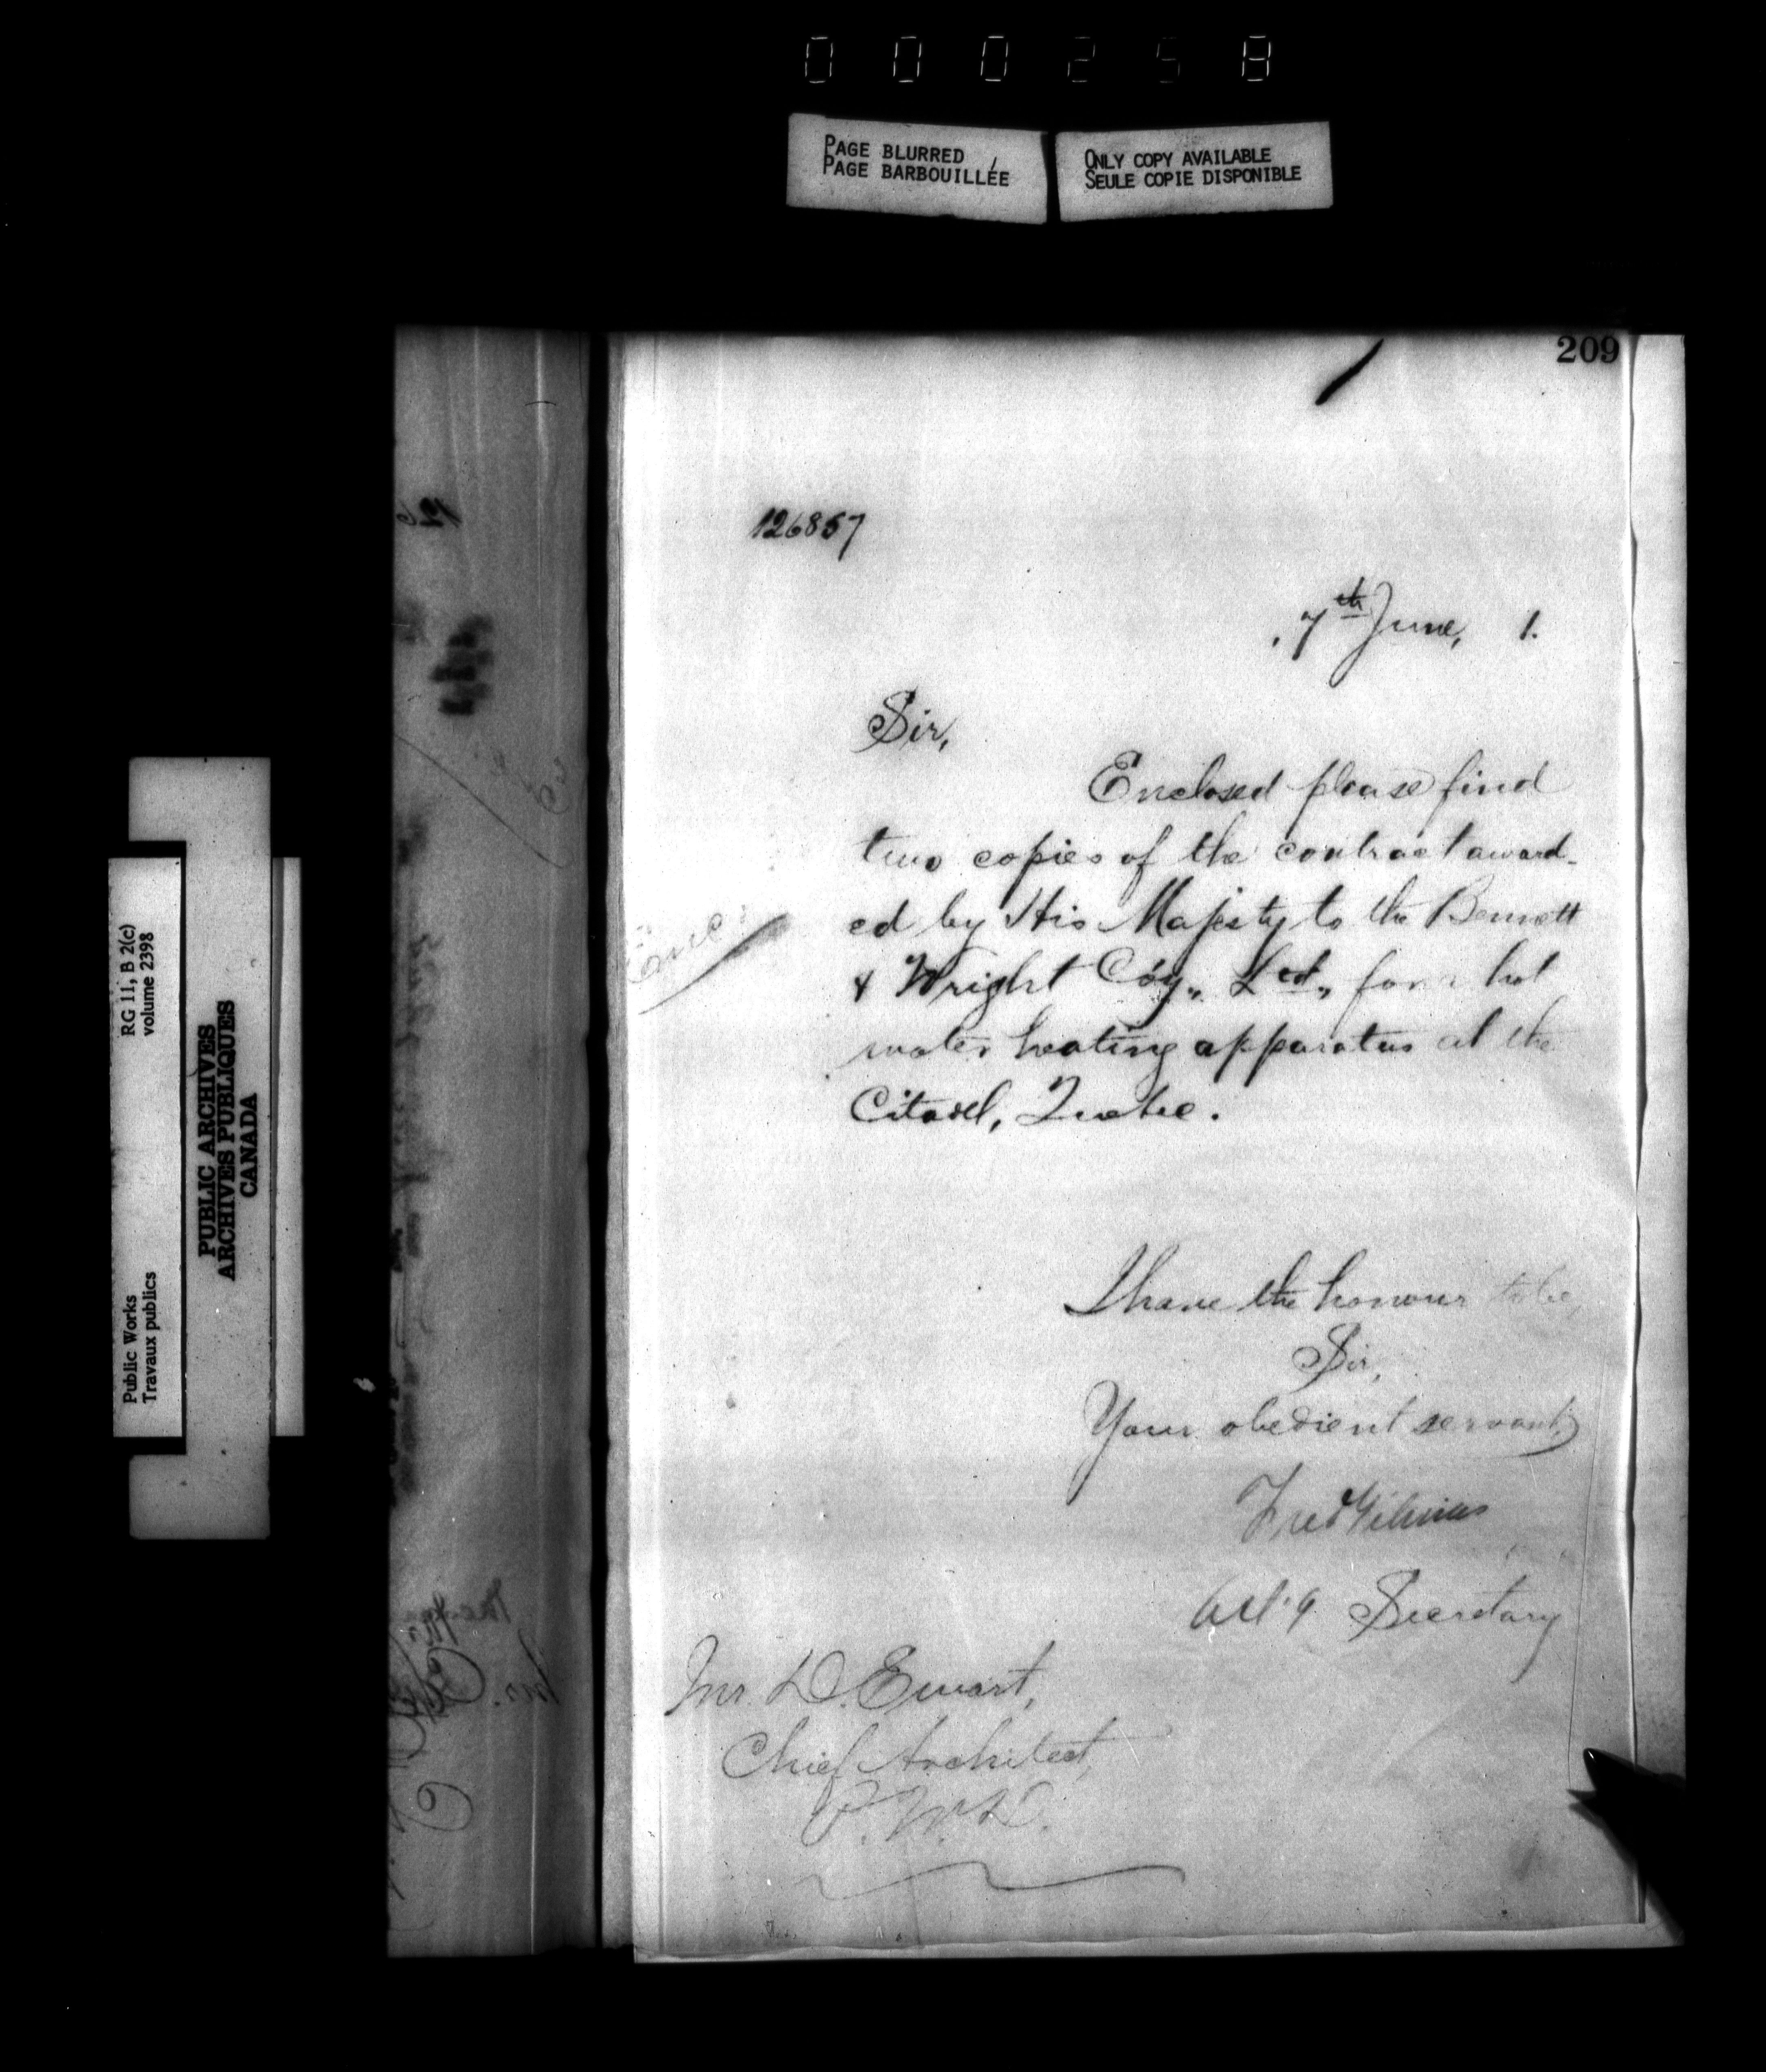 000258
PAGE BLURRED
PAGE BARBOUILLÉE
ONLY COPY AVAILABLE
SEULE COPIE DISPONIBLE
RG 11, B 2(c)
volume 2398
PUBLIC ARCHIVES
ARCHIVES PUBLIQUES
CANADA
Public Works
Travaux publics
209
126857
7th June, 1.
Sir,
Enclosed please find
two copies of the contract award-
ed by His Majesty to the Bennett
& Wright Coy., Ltd., for a hot
water heating apparatus at the
Citadel, Quebec.
Encl
I have the honour to be,
Sir,
Your obedient servant,
Fred Gélinas
Act'g Secretary
Mr. D. Ewart,
Chief Architect,
P. W. D.